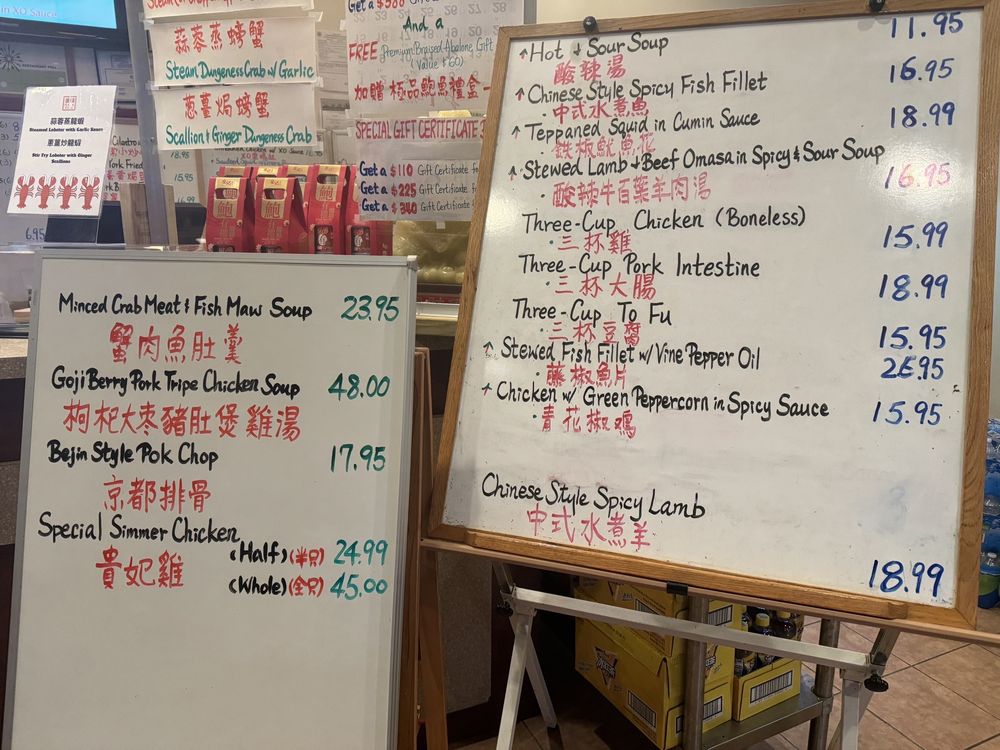 in XO Sauce
蒜蓉蒸螃蟹
Steam Dungeness Crab w/ Garlic
葱薑焗螃蟹
Scallion & Ginger Dungeness Crab
And a
FREE Premium Braised Abalone Gift
(Value $60)
加贈 極品鮑魚禮盒
SPECIAL GIFT CERTIFICATE
Get a $110 Gift Certificate f
Get a $225 Gift Certificate
Get a $340 Gift Certificate
蒜蓉蒸龍蝦
Steamed Lobster with Garlic Sauce
蔥薑炒龍蝦
Stir Fry Lobster with Ginger
Scallions
Minced Crab Meat & Fish Maw Soup 23.95
蟹肉魚肚羹
Goji Berry Pork Tripe Chicken Soup 48.00
枸杞大枣豬肚煲雞湯
Bejin Style Pok Chop 17.95
京都排骨
Special Simmer Chicken
貴妃雞
(Half) (半只) 24.99
(Whole) (全只) 45.00
Hot & Sour Soup 11.95
酸辣湯
Chinese Style Spicy Fish Fillet 16.95
中式水煮魚
Teppaned Squid in Cumin Sauce 18.99
鉄板魷魚花
Stewed Lamb & Beef Omasa in Spicy & Sour Soup 16.95
酸辣牛百葉羊肉湯
Three-Cup Chicken (Boneless) 15.99
三杯雞
Three-Cup Pork Intestine 18.99
三杯大腸
Three-Cup To Fu 15.95
三杯豆腐
Stewed Fish Fillet w/ Vine Pepper Oil 26.95
藤椒魚片
Chicken w/ Green Peppercorn in Spicy Sauce 15.95
青花椒鸡
Chinese Style Spicy Lamb
中式水煮羊
18.99